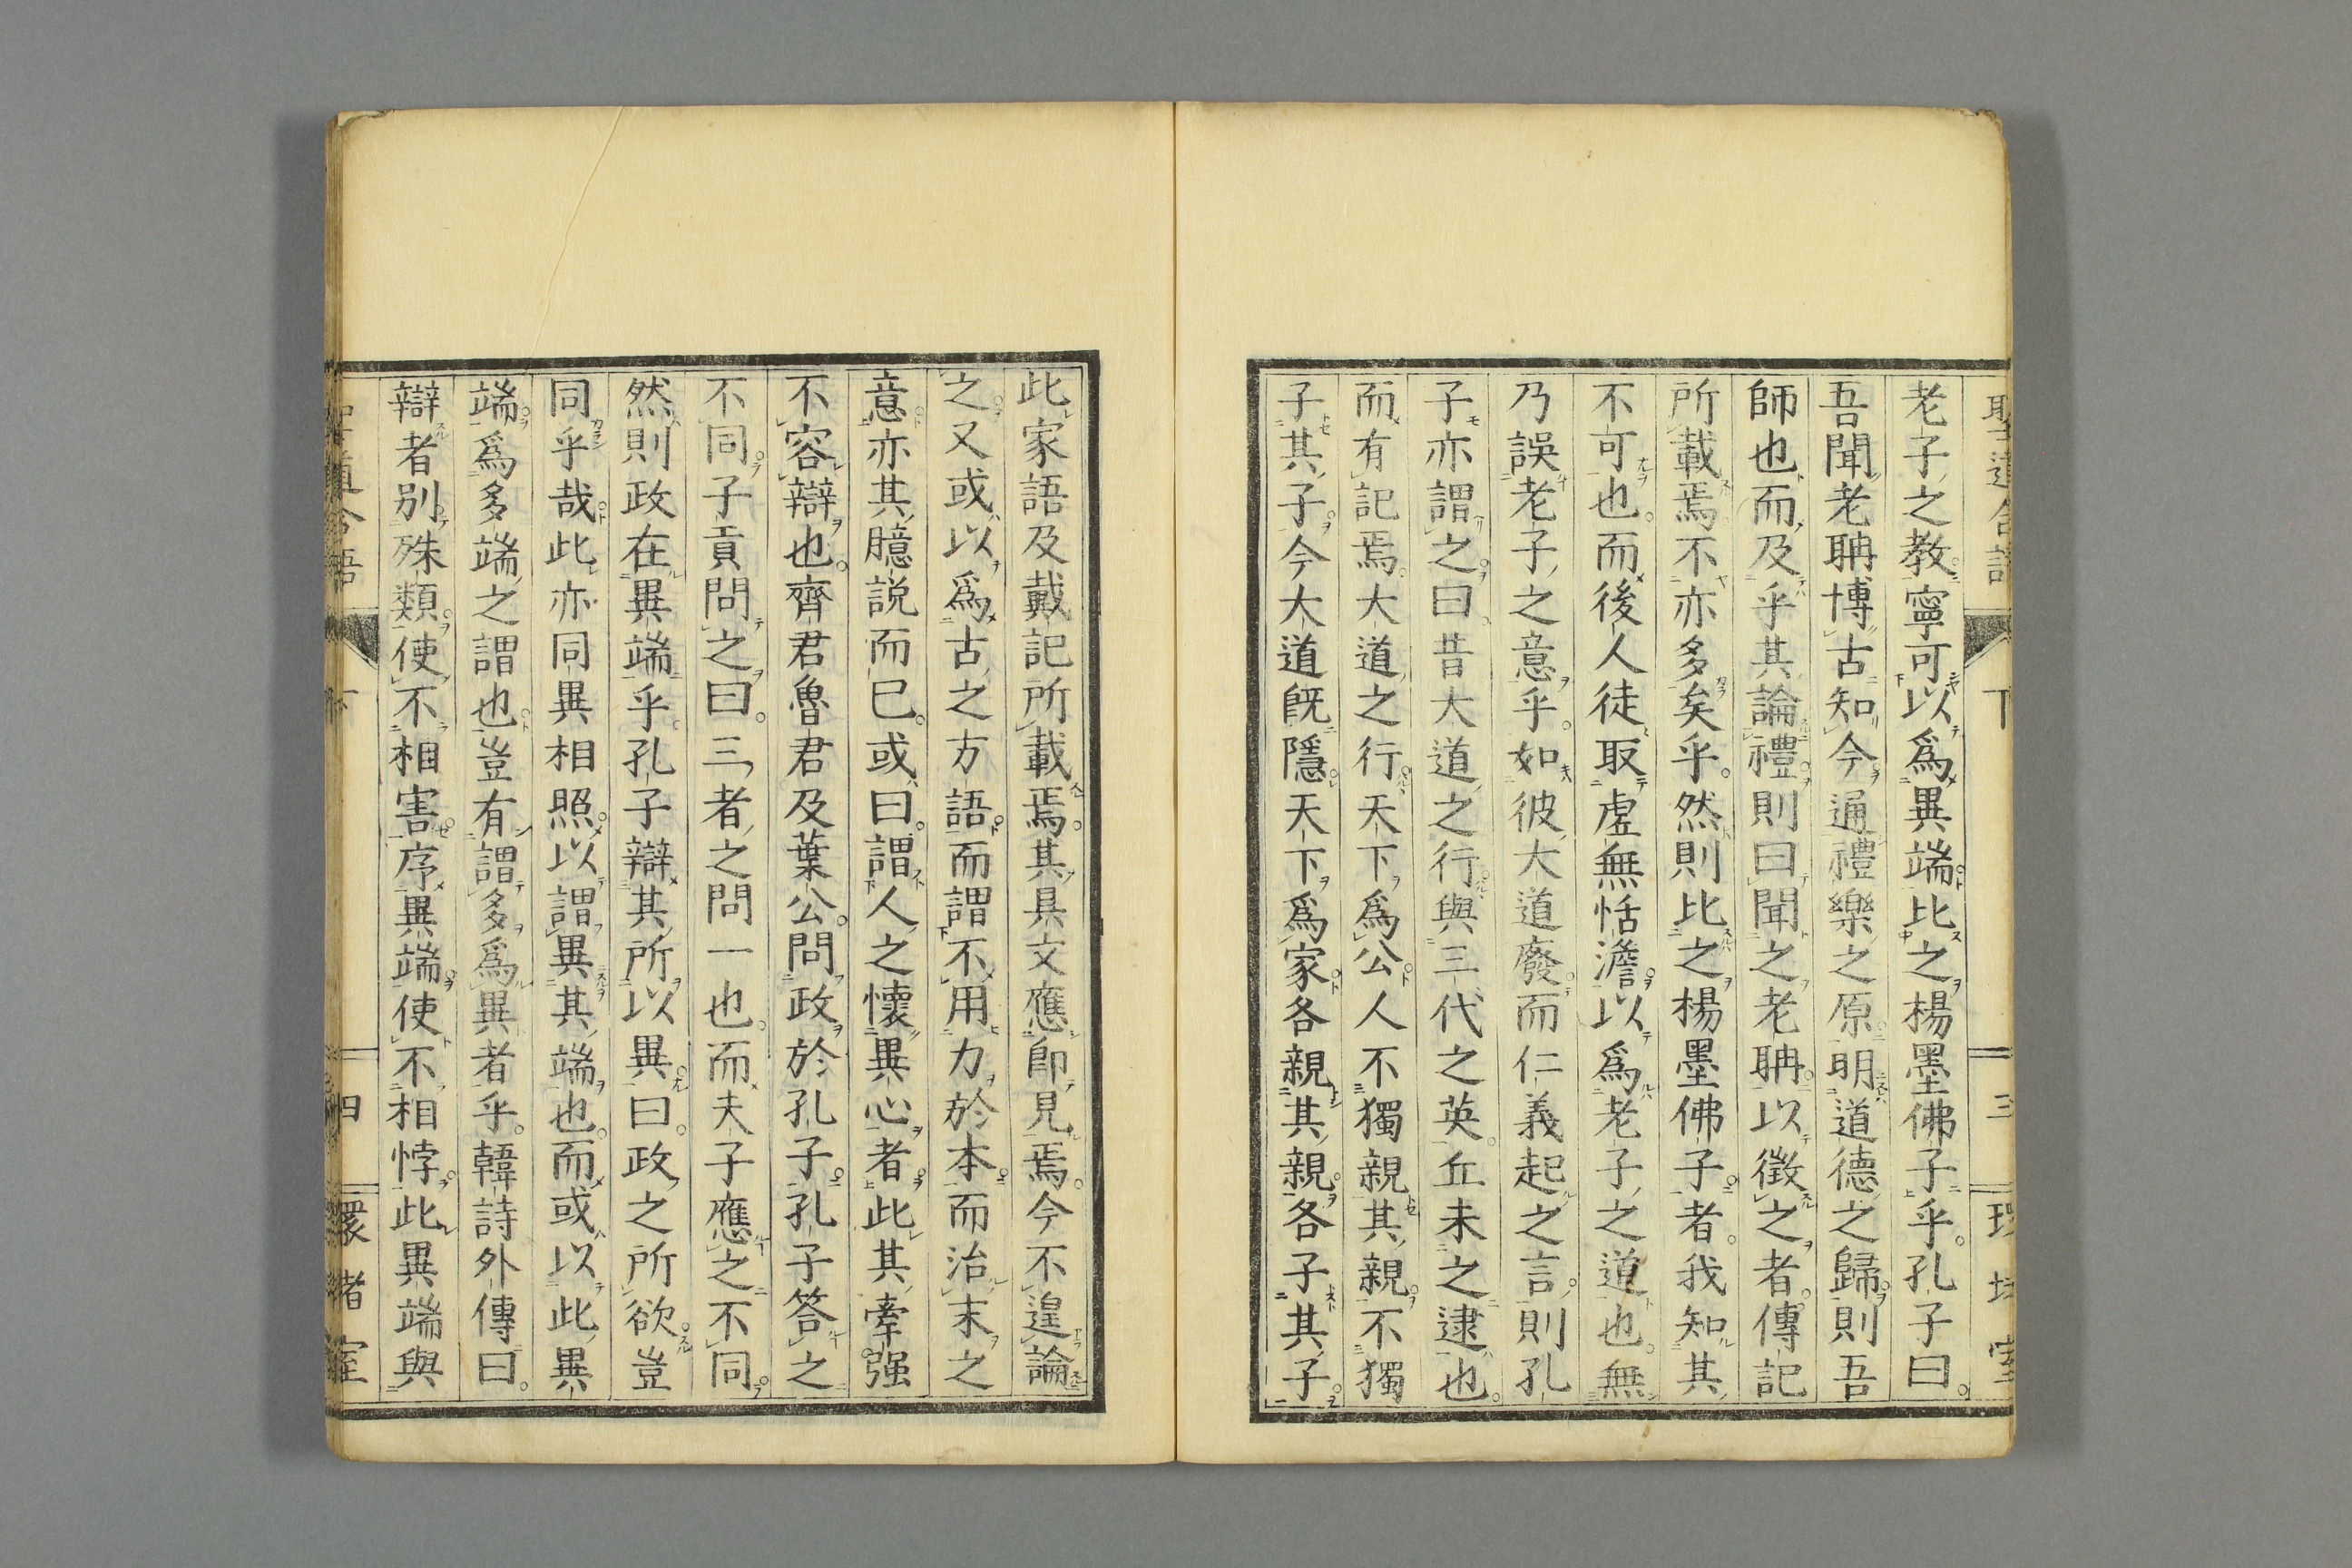 老子之教寧可以爲異端比之楊墨佛子乎孔子曰
吾聞老聃博古知今通禮樂之原明道德之歸則吾
師也而及乎其論禮則曰聞之老聃以徵之者傳記
所載焉不亦多矣乎然則比之楊墨佛子者我知其
不可也而後人徒取虛無恬澹以爲老子之道也無
乃誤老子之意乎如彼大道廢而仁義起之言則孔
子亦謂之曰昔大道之行與三代之英丘未之逮也
而有記焉大道之行天下爲公人不獨親其親不獨
子其子今大道既隱天下爲家各親其親各子其子
此家語及戴記所載焉其具文應卽見焉今不遑論
之又或以爲古之方語而謂不用力於本而治末之
意亦其臆説而已或曰謂人之懷異心者此其牽强
不容辯也齊君魯君及葉公問政於孔子孔子答之
不同子貢問之曰三者之問一也而夫子應之不同
然則政在異端乎孔子辯其所以異曰政之所欲豈
同乎哉此亦同異相照以謂異其端也而或以此異
端爲多端之謂也豈有謂多爲異者乎韓詩外傳曰
辯者別殊類使不相害序異端使不相悖此異端與